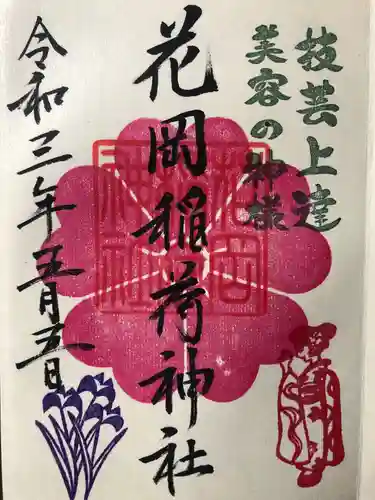 技芸上達
美容の神様
花岡稲荷神社
令和三年五月五日